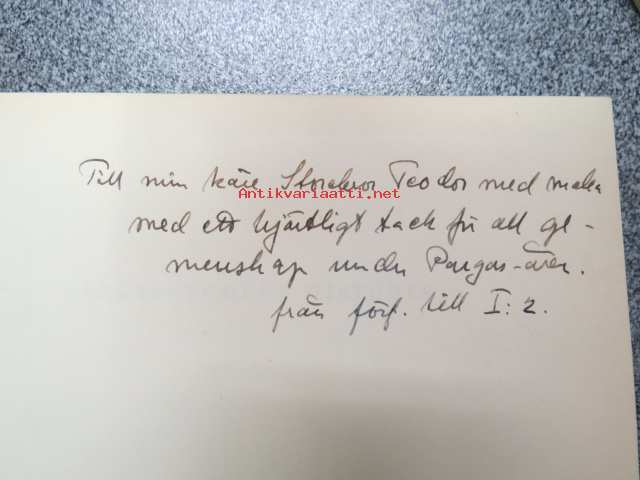 Till min käre Storebror Teodor med maka
Antikvariaatti.net
med ett hjärtligt tack för all ge-
menskap under Pargas-åren.
från förf. till I:2.